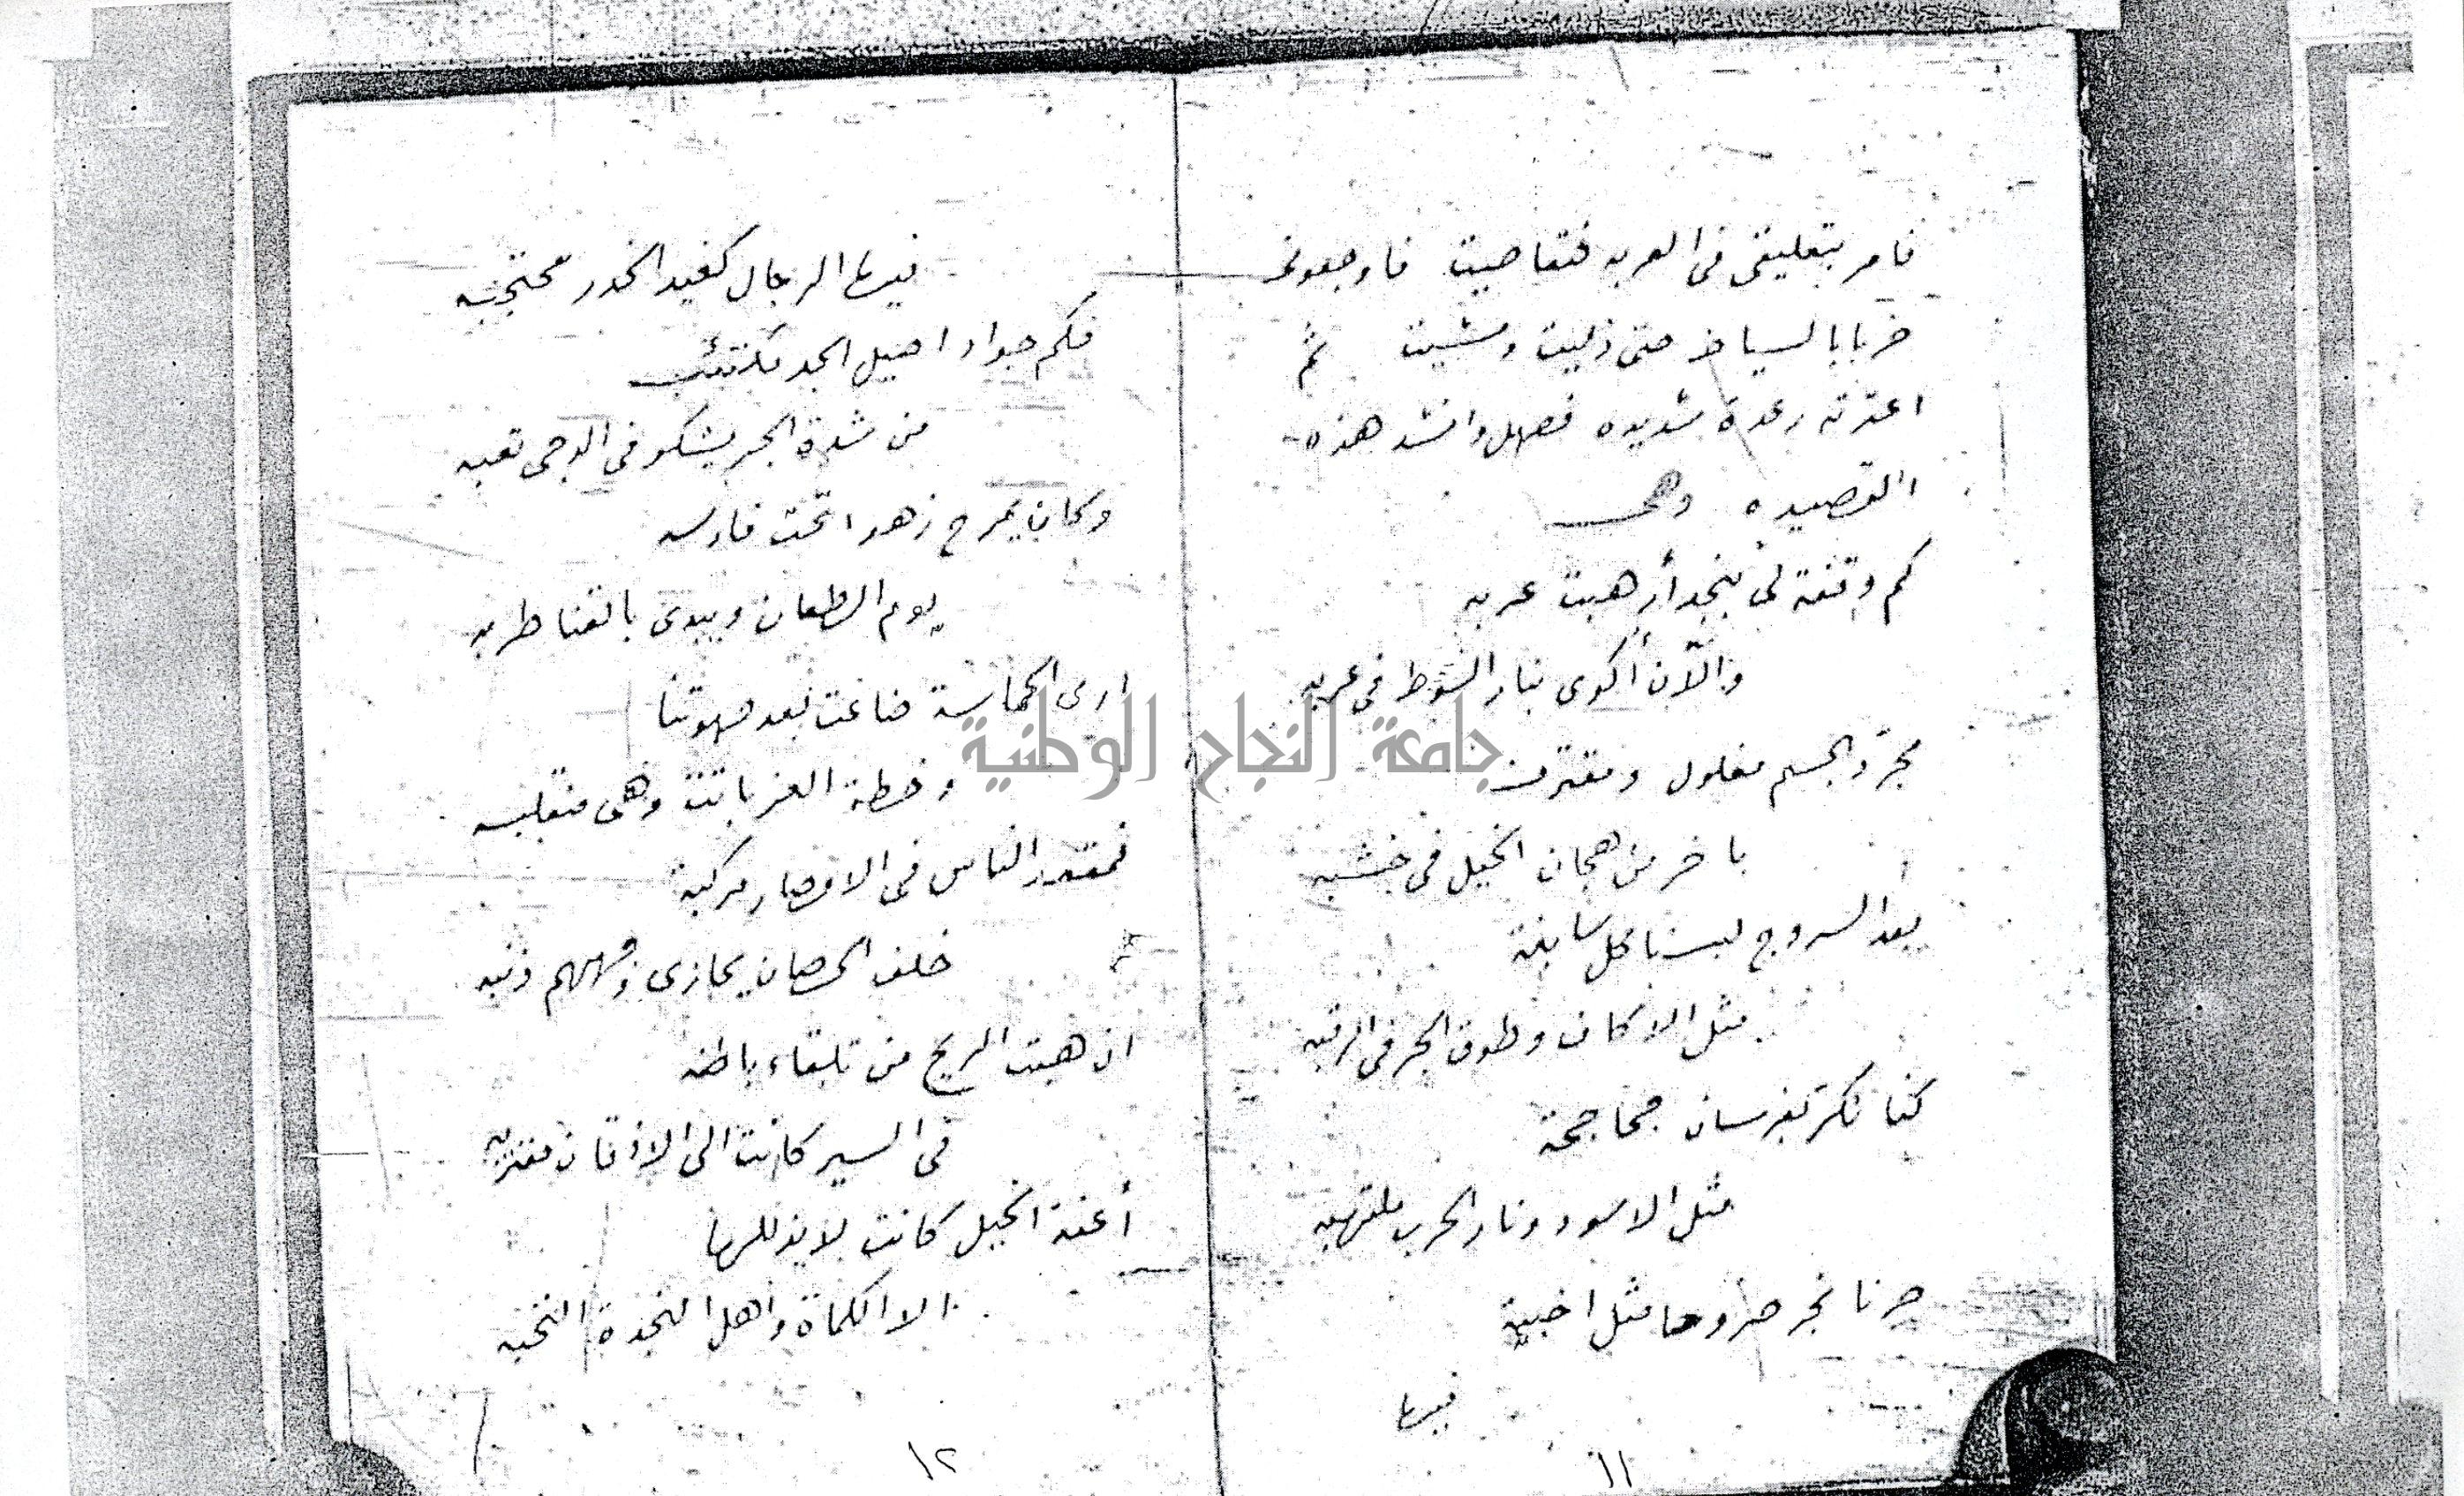 فامر بتعليقى فى العربه فتعاصيت فاوجعونى
ضربا بالسياط حتى ذليت ومشيت ثم
اعترته رعدة شديده فصهل وانشد هذه
القصيده وهى
كم وقفة لى بنجد أرهبت عربه
والآن أكوى بنار السوط فى عربه
مجرّ والجسم مغلول ومقترن
باخر من هجان الخيل فى خشبه
بعد السروج لبسنا كل سابغة
مثل الاكاف وطوق الجر فى الرقبه
كنا نكرّ بفرسان جحاجحة
مثل الاسود ونار الحرب ملتهبه
صرنا نجر صروحا مثل اخبية
فيها
١١
فيها الرجال كغيد الخدر محتجبه
فكم جواد اصيل الجد مكتئب
من شدة الجر يشكو فى الوجى تعبه
وكان يمرح زهوا تحت فارسه
يوم الطعان ويبدى بالقنا طربه
ارى الحماسة ضاعت بعد صهوتنا
وخطة العز باتت وهى منقلبه
فمقعد الناس فى الامصار مركبة
خلف الحصان يحازى وجههم ذنبه
ان هبت الريح من تلقاء باطنه
فى السير كانت الى الاذقان مقتربه
أعنة الخيل كانت لا يذللها
الا الكماة واهل النجدة النخبه
١٢
جامعة النجاح الوطنية